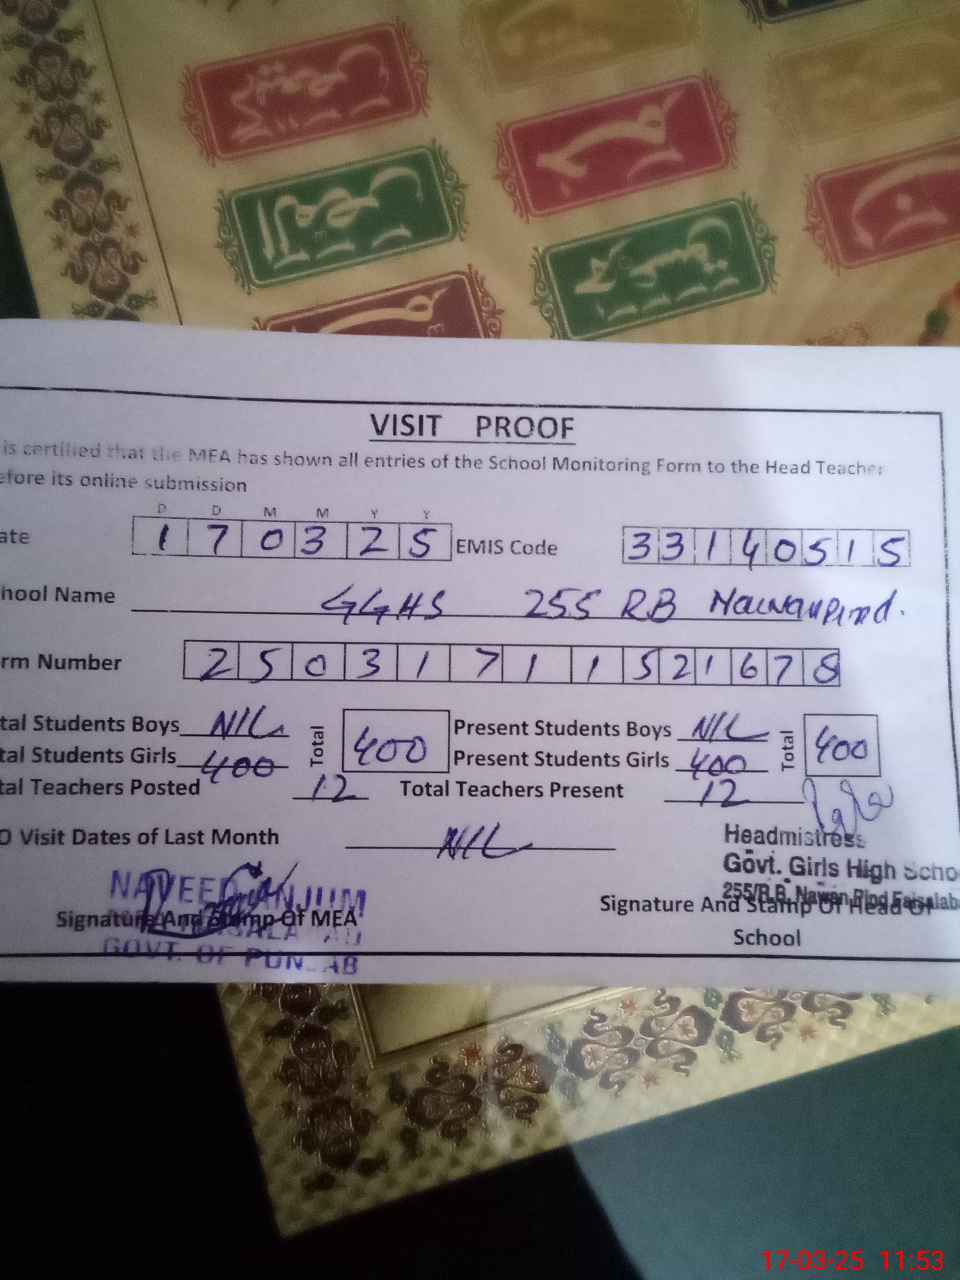 VISIT PROOF
is certified that the MEA has shown all entries of the School Monitoring Form to the Head Teacher
efore its online submission
D D M M Y Y
ate 1 7 0 3 2 5 EMIS Code 3 3 1 4 0 5 1 5
hool Name GGHS 255 RB Nawanpind.
rm Number 2 5 0 3 1 7 1 1 5 2 1 6 7 8
tal Students Boys NIL Total 400 Present Students Boys NIL Total 400
tal Students Girls 400 Present Students Girls 400
tal Teachers Posted 12 Total Teachers Present 12
O Visit Dates of Last Month NIL
Headmistress
Govt. Girls High Scho
255/R.B. Nawan Pind Faisalab
NAVEED ANJUM
Signature And Stamp Of MEA
GOVT. OF PUNJAB
Signature And Stamp Of Head Of
School
17-03-25 11:53